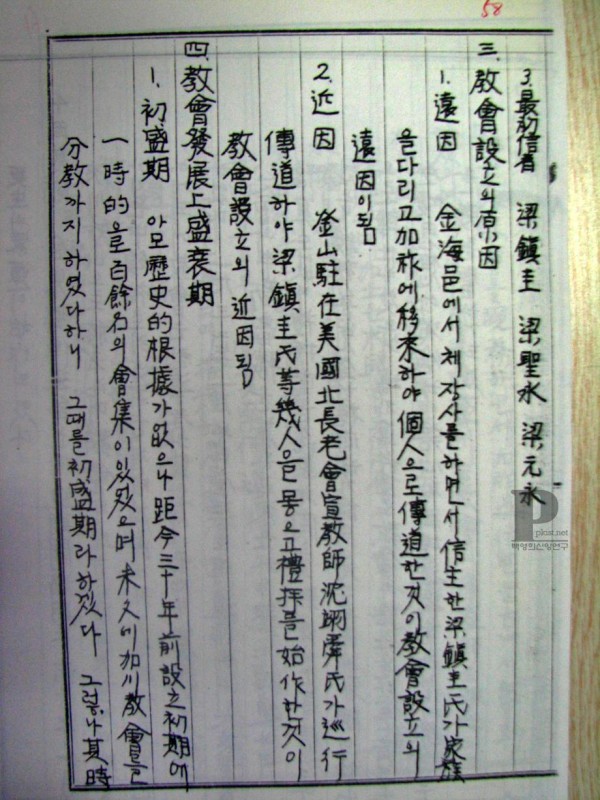 58
3. 最初信者 梁鎭圭 梁聖永 梁元永
三. 教會設立의 原因
1. 遠因 金海邑에서 체장사를 하면서 信主한 梁鎭圭氏가 家族
을 다리고 加祚에 移來하야 個人으로 傳道한 것이 教會設立의
遠因이 됨
2. 近因 釜山駐在 美國北長老會宣教師 沈翊舜氏가 巡行
傳道하야 梁鎭圭氏等 幾人을 몽으고 禮拜를 始作한 것이
教會設立의 近因 됨
四. 教會發展上 盛衰期
1. 初盛期 아모 歷史的 根據가 없으나 距今 三十年前 設立初期에
一時的으로 百餘名의 會集이 있었으며 未久에 加川教會를
分教까지 하였다하니 그때를 初盛期라 하겠다 그렇나 其時
pkist.net
백영희신앙연구